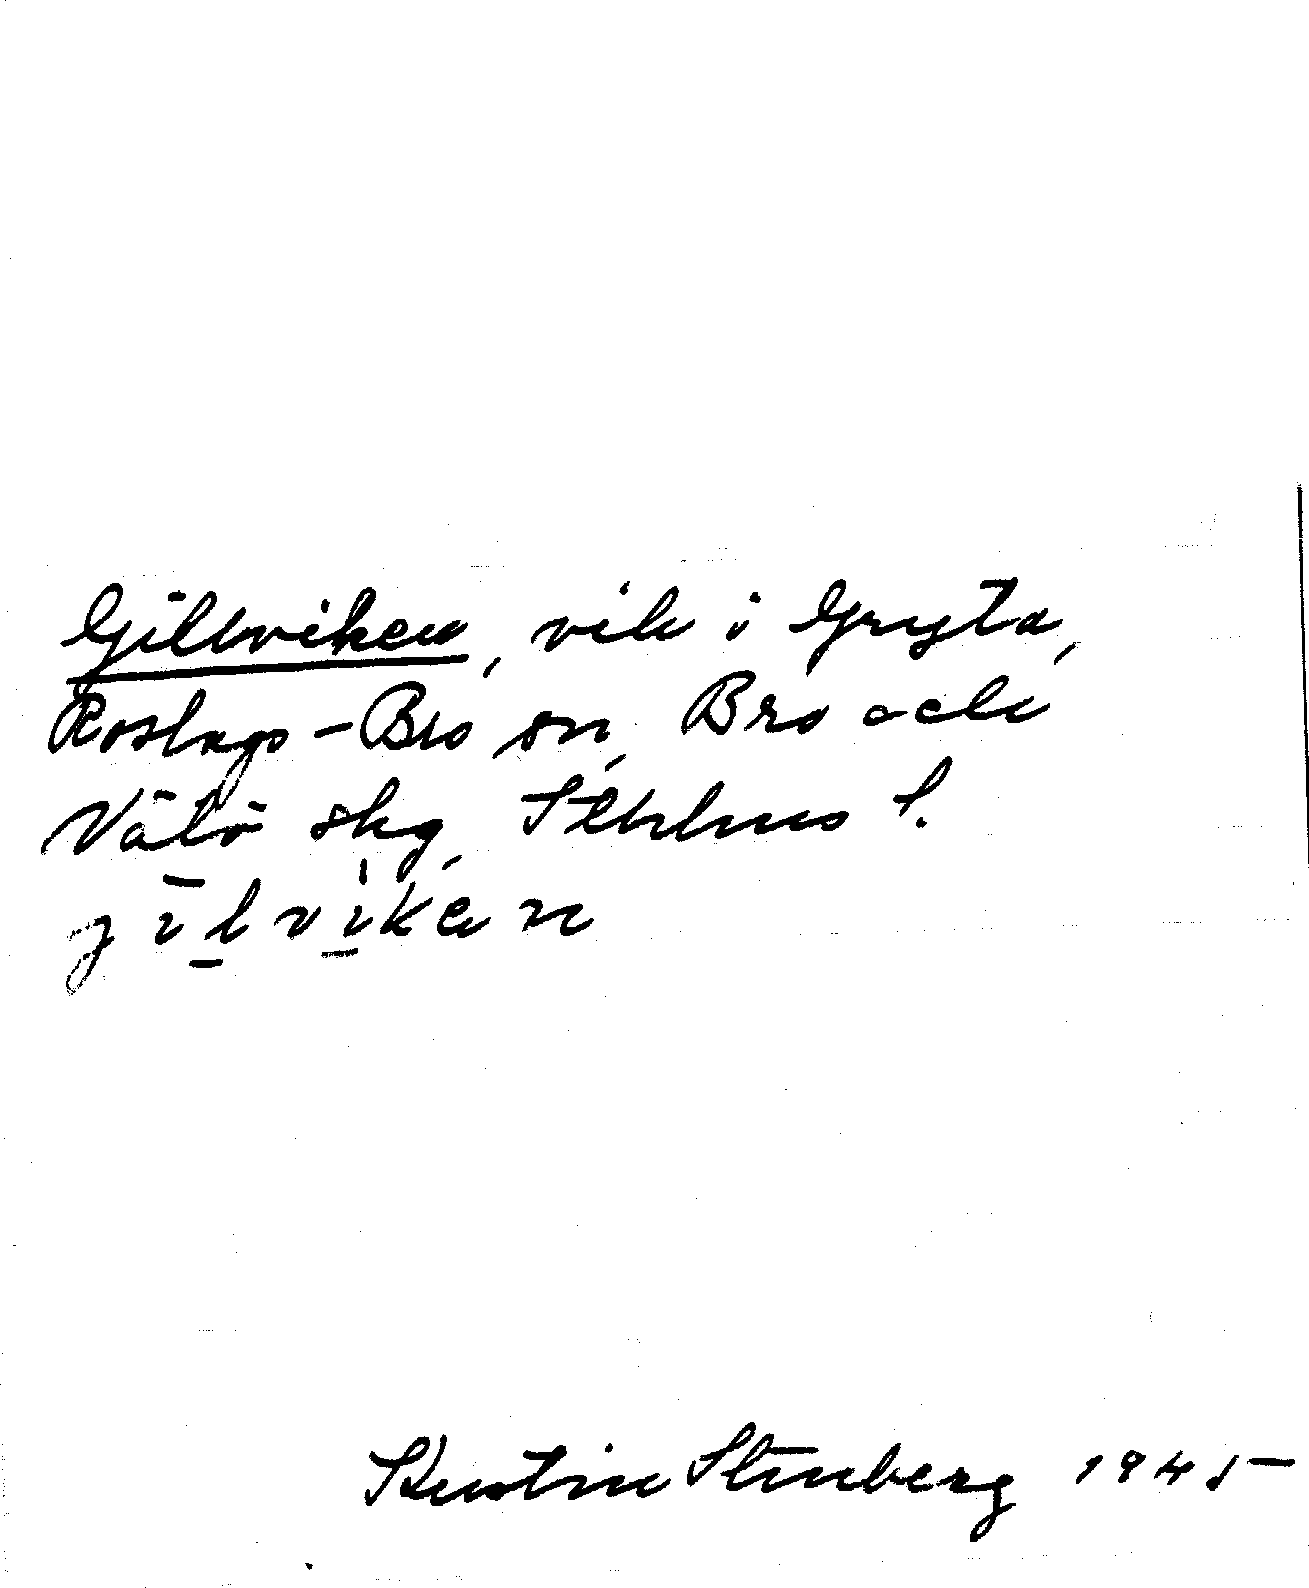 Gillviken, vik i Gryta,
Roslags-Bro sn, Bro och
Vätö skg, Sthlms l.
jilvikɑn
Kerstin Stenberg 1945